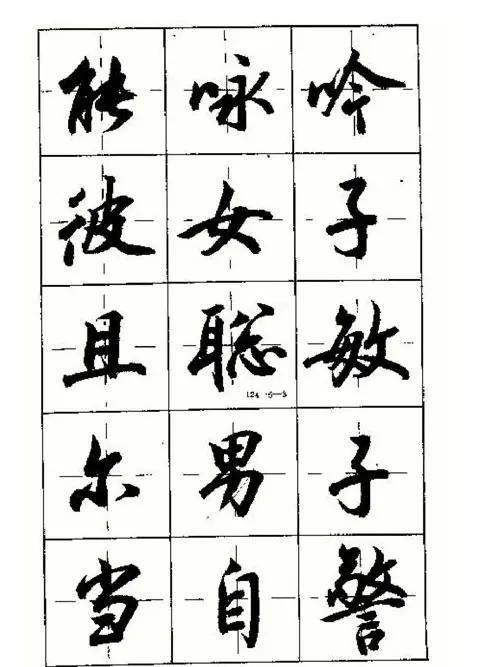 能咏吟
彼女子
且聪敏
尔男子
当自警
124 · 5—3